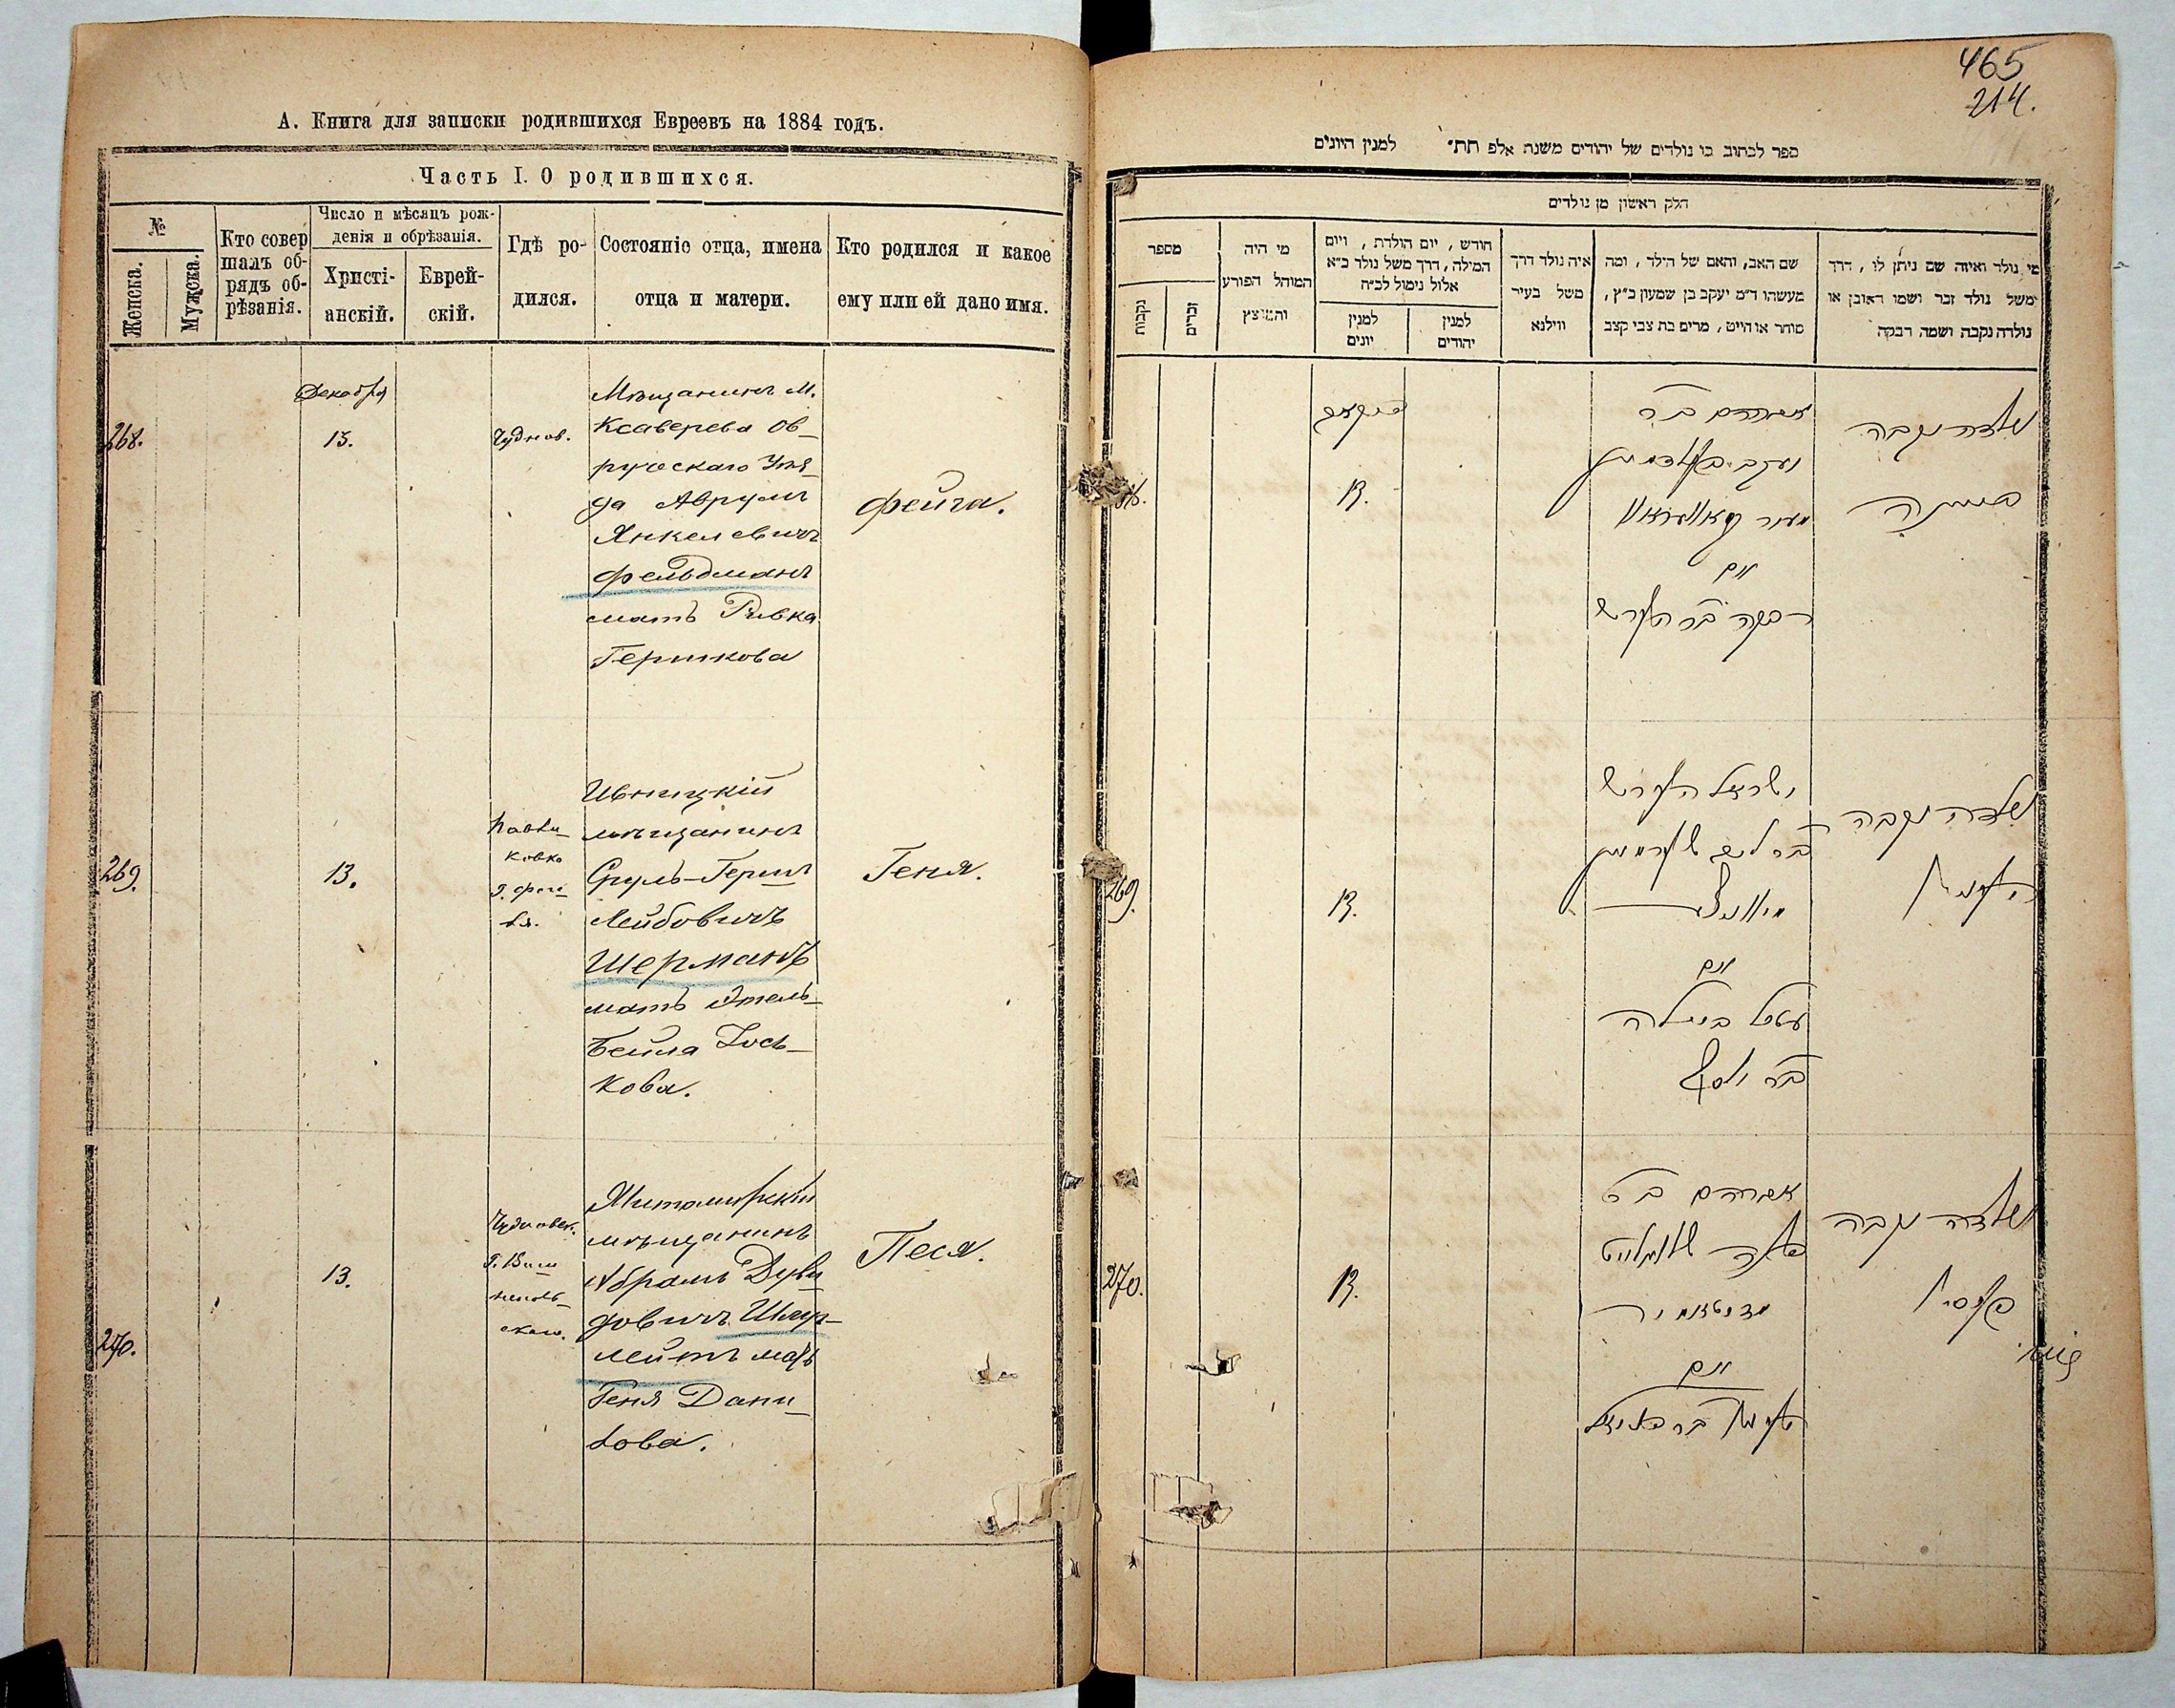 А. Книга для записки родившихся Евреевъ на 1884 годъ.
Часть I. О родившихся.
№
Женска.
Мужска.
Кто совер
шалъ об-
рядъ об-
рѣзанія.
Число и мѣсяцъ рож-
денія и обрѣзанія.
Христі-
анскій.
Еврей-
скій.
Гдѣ ро-
дился.
Состояніе отца, имена
отца и матери.
Кто родился и какое
ему или ей дано имя.
Декабря
268.
13.
Чуднов.
Мѣщанинъ М.
Ксаверева Ов-
ручскаго Уѣз-
да Аврумъ
Янкелевичъ
Фельдманъ
мать Ривка
Гершкова
Фейга.
269.
13.
Ивницкій
мѣщанинъ
Сруль-Герш
Лейбовичъ
Шерманъ
мать Этель-
Бейла Іось-
кова.
Геня.
270.
13.
Житомирскій
мѣщанинъ
Абрамъ Дуви
довичъ Шмур-
лейтъ мать
Геня Дани
лова.
Песя.
465
214.
ספר לכתוב בו נולדים של יהודים משנת אלפ תת״ למנין היונים
חלק ראשון מן נולדים
מספר
נקבות
זכרים
מי היה
המוהל הפורע
והמוצץ
חודש, יום הולדת, ויום
המילה, דרך משל נולד כ״א
אלול נימול לכ״ח
למנין
יונים
למנין
יהודים
איה נולד דרך
משל בעיר
ווילנא
שם האב, והאם של הילד, ומה
מעשהו ד״מ יעקב בן שמעון כ״ץ,
סוחר או חייט, מרים בת צבי קצב
מי נולד ואיזה שם ניתן לו, דרך
משל נולד זכר ושמו ראובן או
נולדה נקבה ושמה רבקה
דעקאב
13.
אברהם ב״ר
יעקב פעלדמאן
ואם
רבקה בר הערש
נולדה נקבה
פייגה
269.
13.
ישראל הערש
בר ליב שערמאן
ואם
עטלביילה
בר יוסף
נולדה נקבה
העניא
270.
13.
אברהם ב״ר
זיטאמיר
ואם
העניא בר דניאל
נולדה נקבה
פעסיא